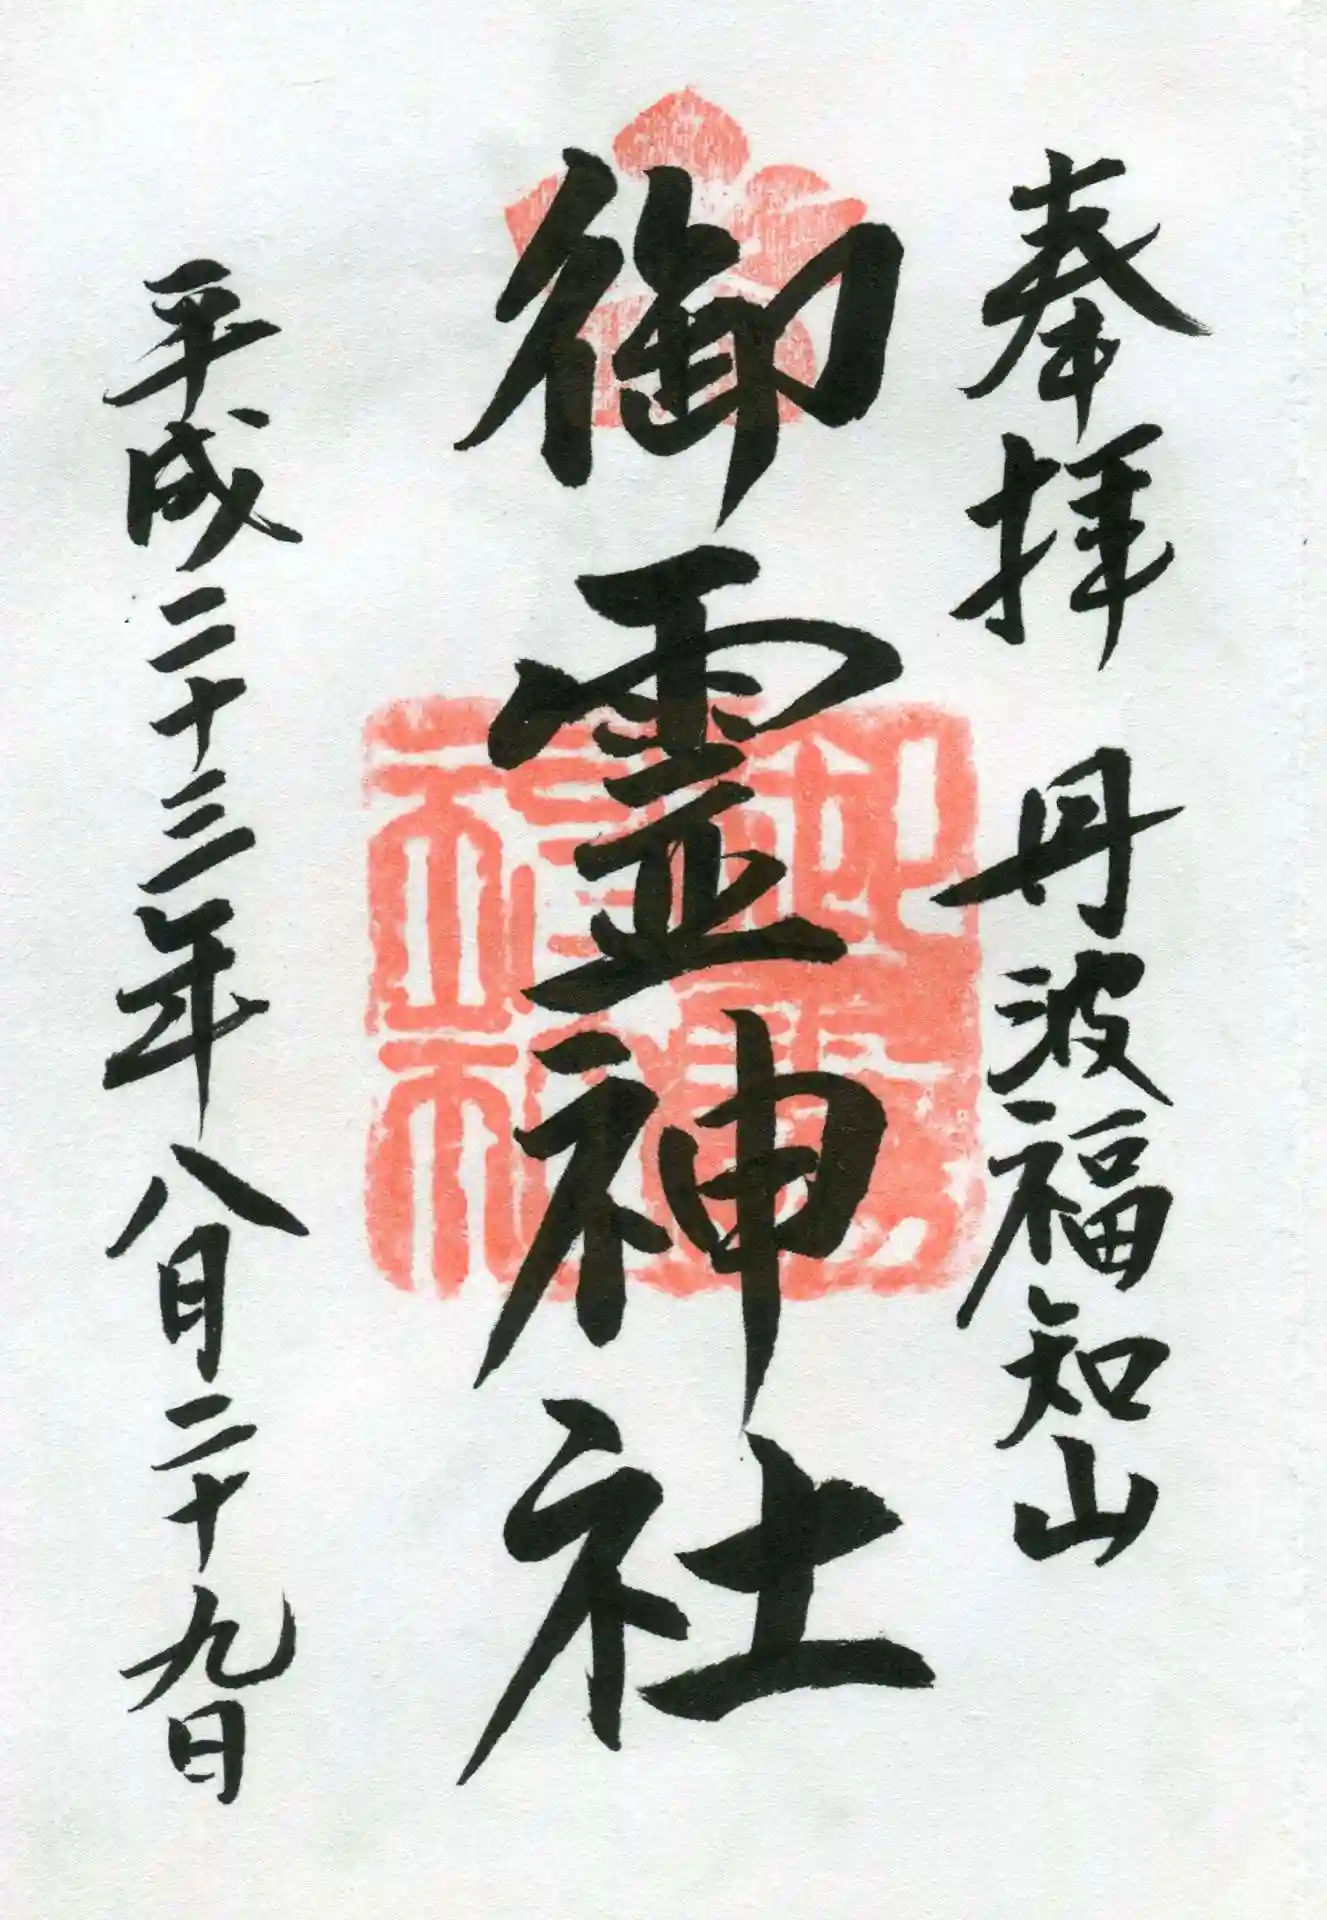 奉拝　丹波福知山
御霊神社
平成二十三年八月二十九日